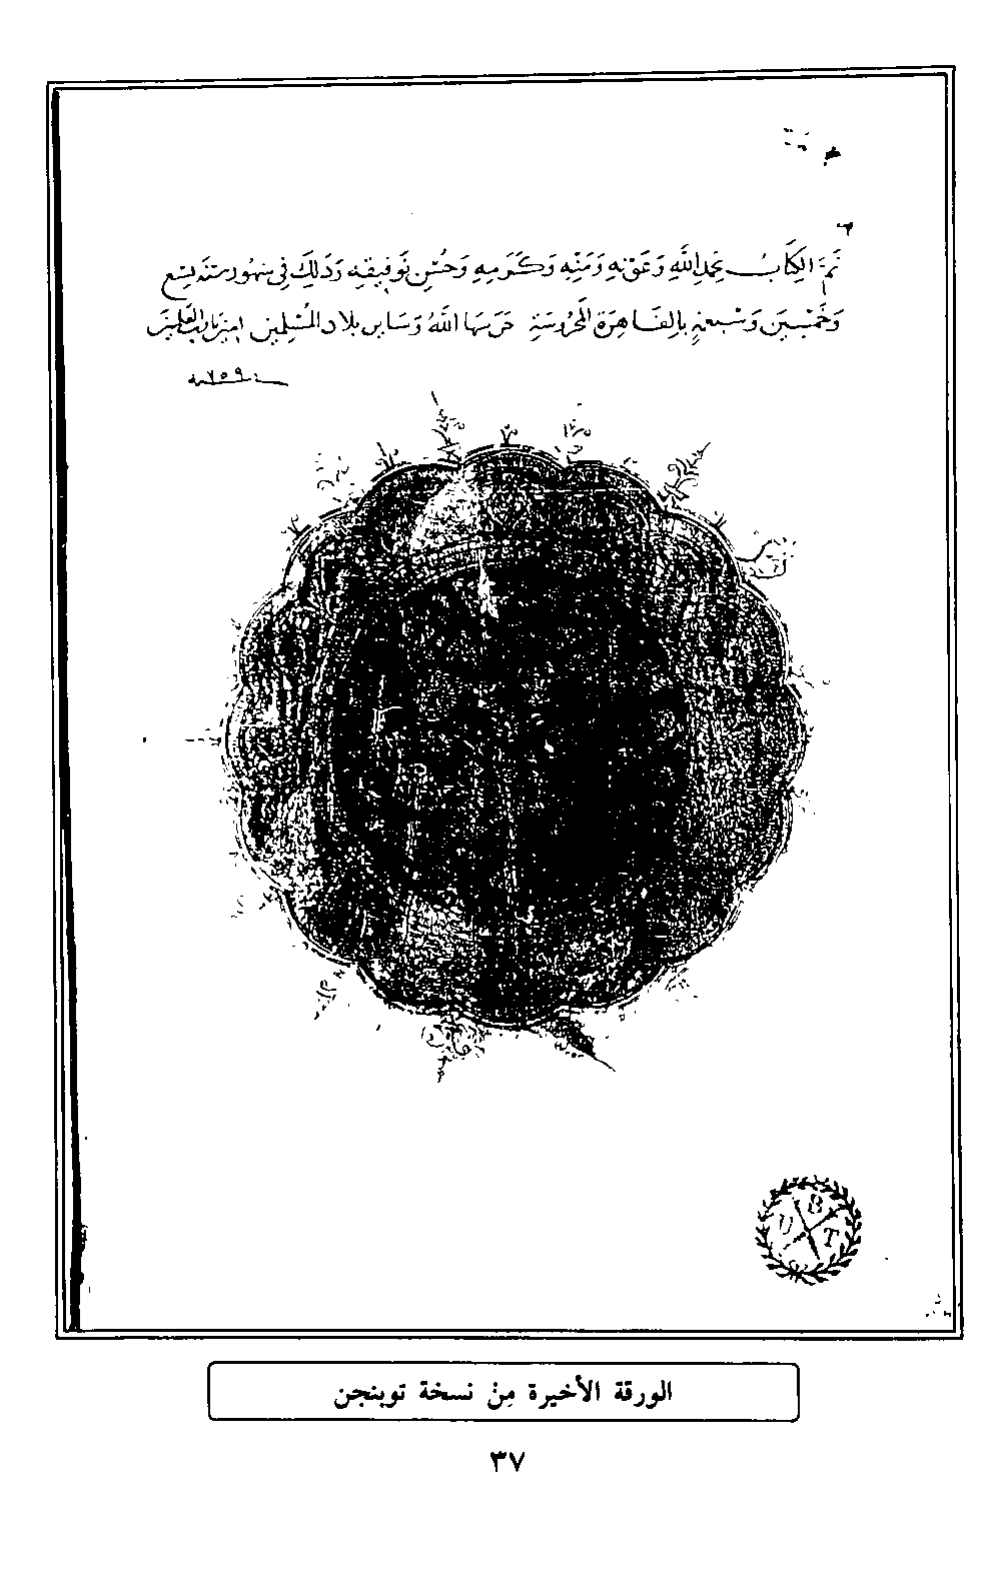 تَمَّ الكِتَابُ بِحَمْدِ اللهِ وَعَوْنِهِ وَمَنِّهِ وَكَرَمِهِ وَحُسْنِ تَوفِيقِهِ وَذَلِكَ فِي شهُور سَنَة تِسْع
وَخَمْسِينَ وَسَبعمِائةٍ بِالقَاهِرَةِ المَحْرُوسَةِ حَرَسَهَا اللهُ وَسَايِر بِلَادِ المُسْلِمِينَ امِين يا رب العلمين
سنة ٧٥٩
U B T
الورقة الأخيرة مِنْ نسخة توبنجن
٣٧